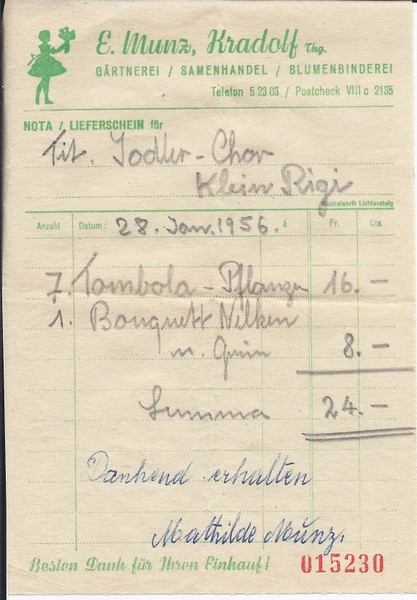 E. Munz, Kradolf Thg.
GÄRTNEREI / SAMENHANDEL / BLUMENBINDEREI
Telefon 5 23 03 / Postcheck VIII c 2135
NOTA / LIEFERSCHEIN für
Tit. Jodler-Chor
Klein Rigi
Anzahl Datum: 28. Jan. 1956. à Fr. Cts.
7. Tombola-Pflanzen 16.–
1. Bouquett Nelken
m. Grün 8.–
Summa 24.–
Dankend erhalten
Mathilde Munz.
Besten Dank für Ihren Einkauf! 015230